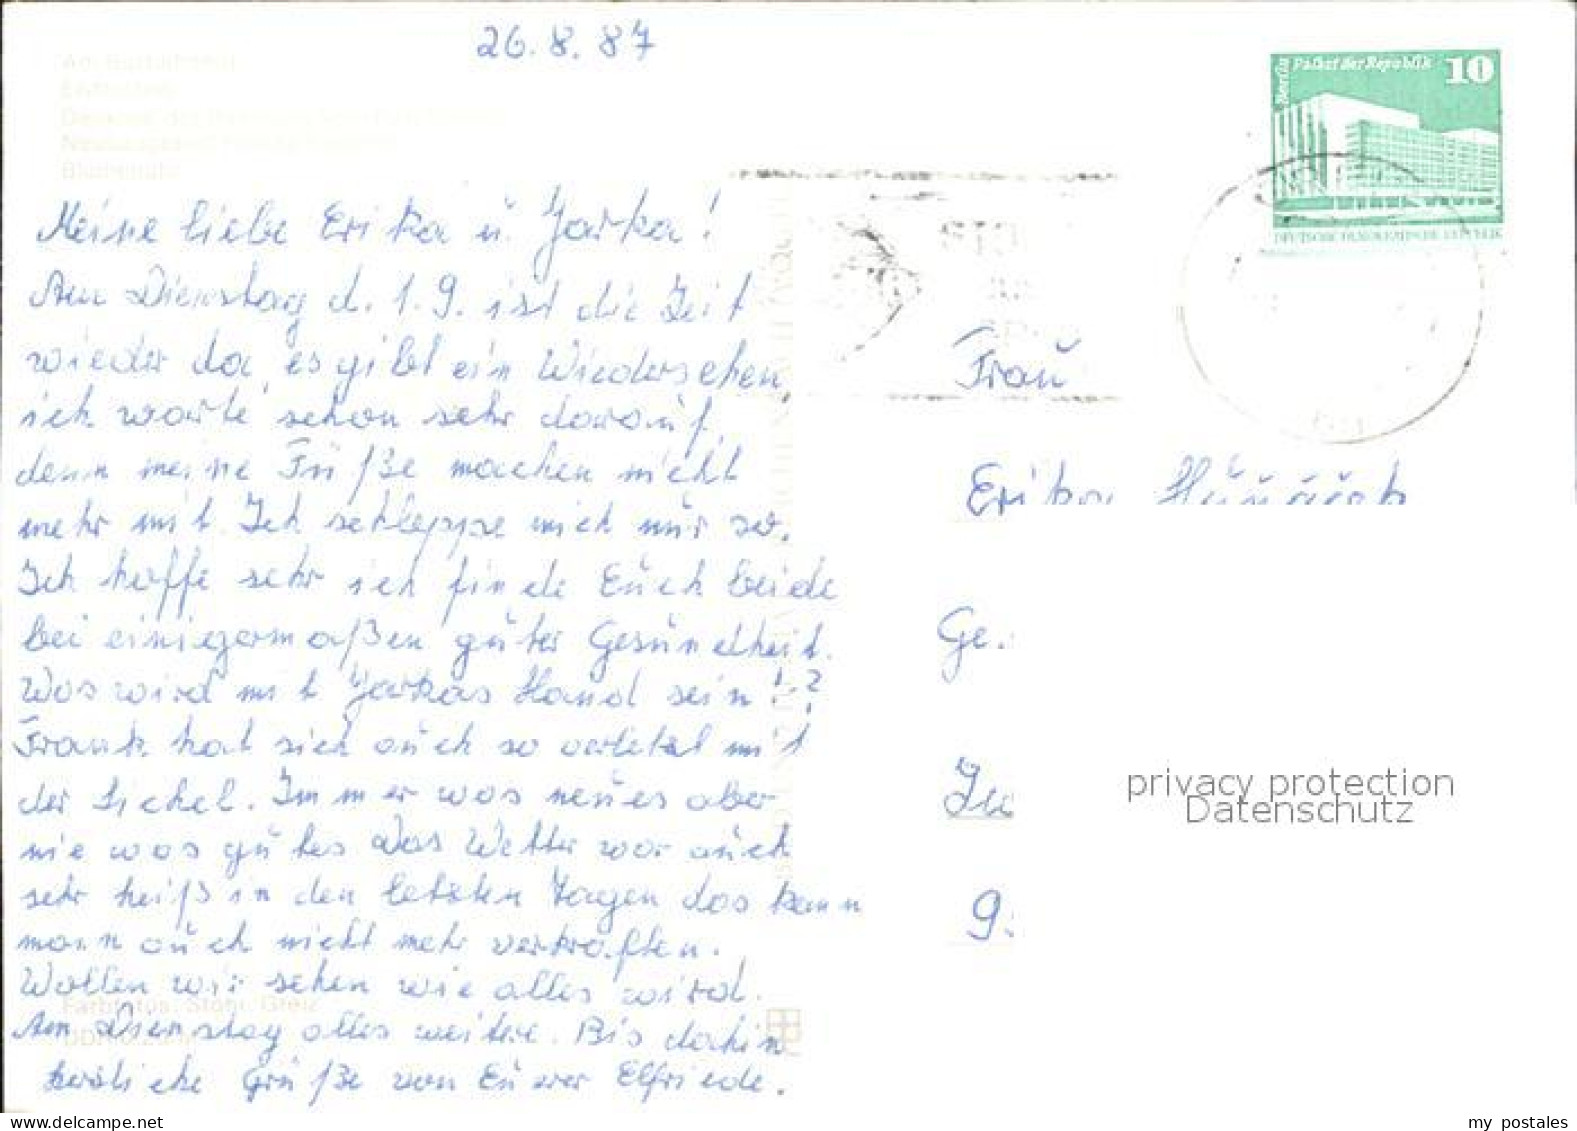 26.8.87
Berlin Palast der Republik 10
DEUTSCHE DEMOKRATISCHE REPUBLIK
Meine liebe Erika u. Jarka!
Am Dienstag d. 1.9. ist die Zeit
wieder da, es gibt ein Wiedersehen,
ich warte schon sehr darauf,
denn meine Füße machen nicht
mehr mit. Ich schleppe mich nur so.
Ich hoffe sehr ich finde Euch beide
bei einigermaßen guter Gesundheit.
Was wird mit Jarkas Hand sein!?
Frank hat sich auch so verletzt mit
der Sichel. Immer was neues aber
nie was gutes. Das Wetter war auch
sehr heiß in den letzten Tagen das kann
man auch nicht mehr verkraften.
Wollen wir sehen wie alles wird.
Am Dienstag alles weitere. Bis dahin
herzliche Grüße von Eurer Elfriede.
Frau
Erika
Ge.
9
Farbfotos: Stöhr, Greiz
privacy protection
Datenschutz
my postales